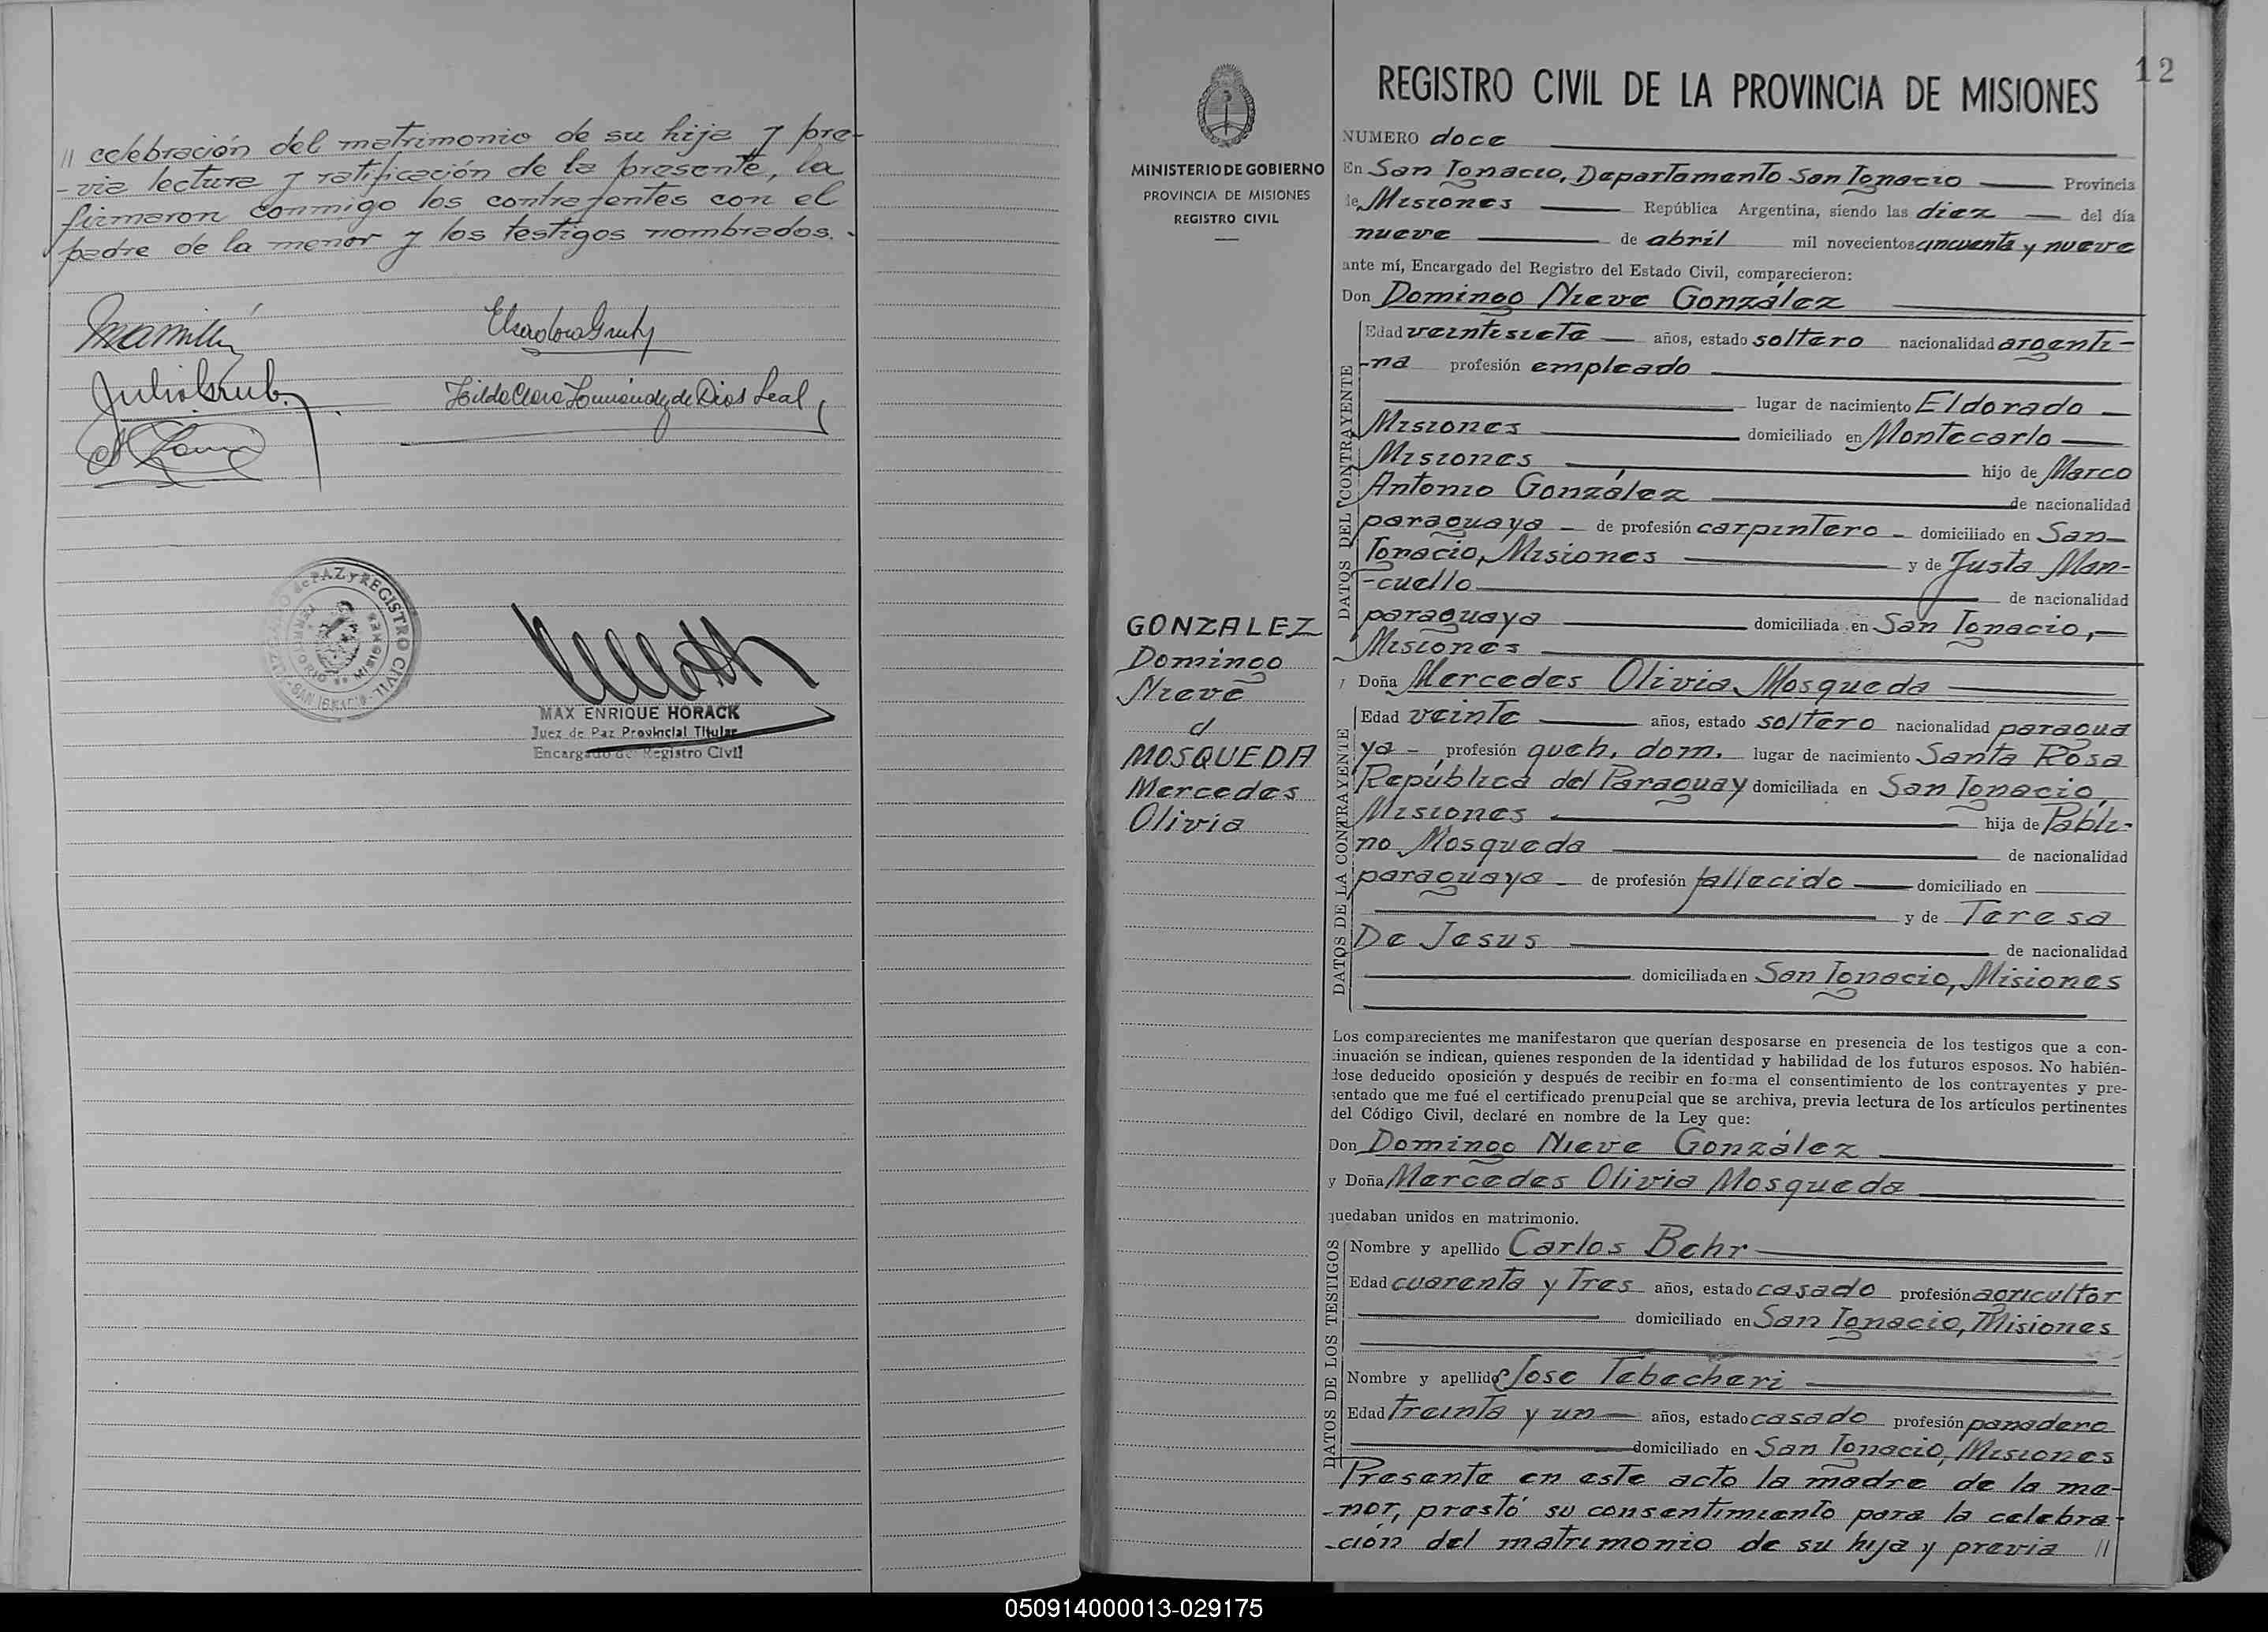 // celebración del matrimonio de su hija y pre-
-via lectura y ratificación de la presente, la
firmaron conmigo los contrayentes con el
padre de la menor y los testigos nombrados.
Julio Grub
Hilda Clara Hernández de Dios Leal
de PAZ y REGISTRO CIVIL
SAN IGNACIO
TERRITORIO
MISIONES
MAX ENRIQUE HORACK
Juez de Paz Provincial Titular
Encargado de Registro Civil
12
MINISTERIO DE GOBIERNO
PROVINCIA DE MISIONES
REGISTRO CIVIL
GONZALEZ
Domingo
Nieve
c/
MOSQUEDA
Mercedes
Olivia
REGISTRO CIVIL DE LA PROVINCIA DE MISIONES
NUMERO doce
En San Ignacio, Departamento San Ignacio Provincia
de Misiones República Argentina, siendo las diez del día
nueve de abril mil novecientos cincuenta y nueve
ante mí, Encargado del Registro del Estado Civil, comparecieron:
Don Domingo Nieve González
DATOS DEL CONTRAYENTE
Edad veintisiete años, estado soltero nacionalidad argenti-
-na profesión empleado
lugar de nacimiento Eldorado
Misiones domiciliado en Montecarlo
Misiones hijo de Marco
Antonio González de nacionalidad
paraguaya de profesión carpintero domiciliado en San
Ignacio, Misiones y de Justa Man-
-cuello de nacionalidad
paraguaya domiciliada en San Ignacio,
Misiones
y Doña Mercedes Olivia Mosqueda
DATOS DE LA CONTRAYENTE
Edad veinte años, estado soltero nacionalidad paragua
ya - profesión queh. dom. lugar de nacimiento Santa Rosa
República del Paraguay domiciliada en San Ignacio,
Misiones hija de Pabli-
no Mosqueda de nacionalidad
paraguaya de profesión fallecido domiciliado en
y de Teresa
De Jesus de nacionalidad
domiciliada en San Ignacio, Misiones
Los comparecientes me manifestaron que querían desposarse en presencia de los testigos que a con-
tinuación se indican, quienes responden de la identidad y habilidad de los futuros esposos. No habién-
dose deducido oposición y después de recibir en forma el consentimiento de los contrayentes y pre-
sentado que me fué el certificado prenupcial que se archiva, previa lectura de los artículos pertinentes
del Código Civil, declaré en nombre de la Ley que:
Don Domingo Nieve González
y Doña Mercedes Olivia Mosqueda
quedaban unidos en matrimonio.
DATOS DE LOS TESTIGOS
Nombre y apellido Carlos Behr
Edad cuarenta y tres años, estado casado profesión agricultor
domiciliado en San Ignacio, Misiones
Nombre y apellido Jose Tabacheri
Edad treinta y un años, estado casado profesión panadero
domiciliado en San Ignacio, Misiones
Presente en este acto la madre de la me-
-nor, prestó su consentimiento para la celebra-
-ción del matrimonio de su hija y previa //
050914000013-029175